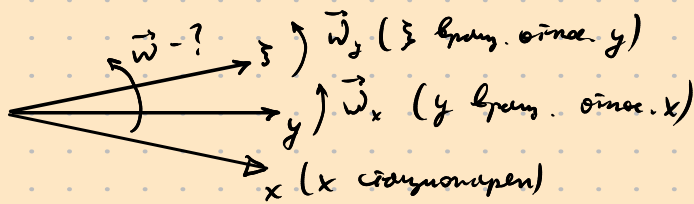 w⃗ - ? ξ w⃗y (ξ вращ. относ. y)
y w⃗x (y вращ. относ. x)
x (x стационарен)